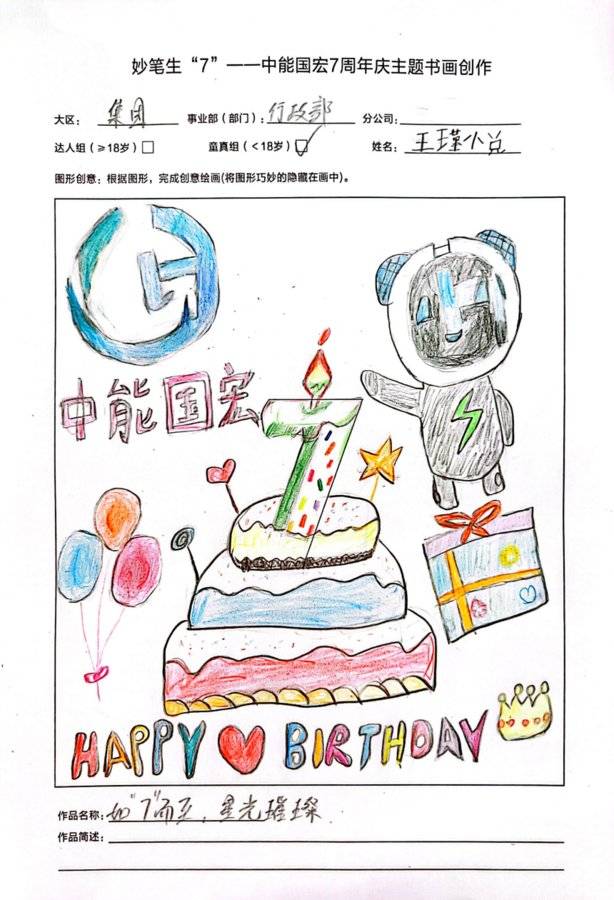 妙笔生“7”——中能国宏7周年庆主题书画创作
大区： 集团 事业部（部门）: 行政部 分公司:
达人组（≥18岁） 童真组（<18岁） 姓名： 王瑾小兑
图形创意：根据图形，完成创意绘画(将图形巧妙的隐藏在画中)。
中能国宏
7
HAPPY BIRTHDAY
作品名称: 如“7”而至，星光璀璨
作品简述: